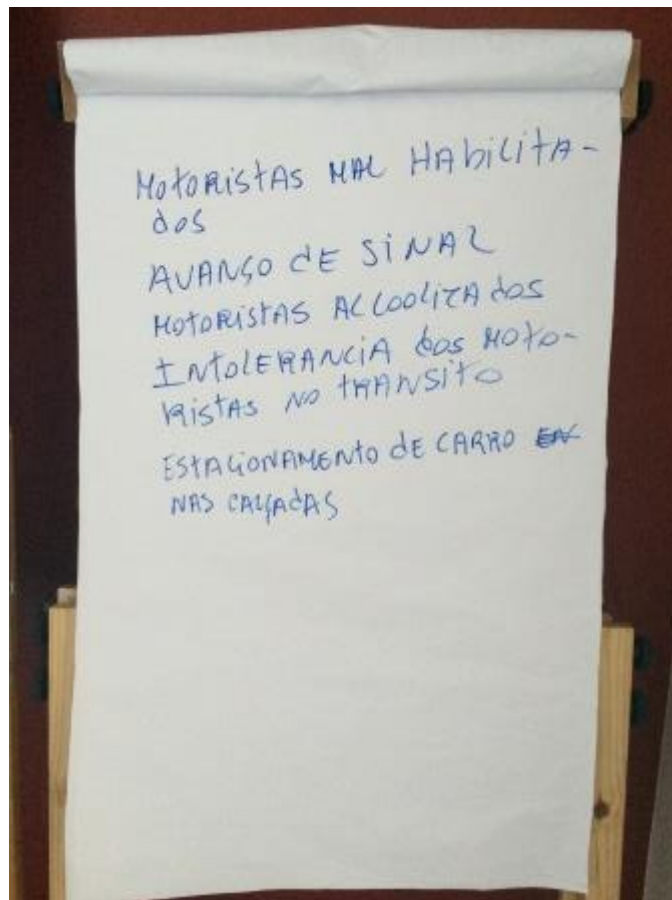 MOTORISTAS MAL HABILITA-
DOS
AVANÇO DE SINAL
MOTORISTAS ALCOOLIZADOS
INTOLERANCIA DOS MOTO-
RISTAS NO TRANSITO
ESTACIONAMENTO DE CARRO
NAS CALÇADAS